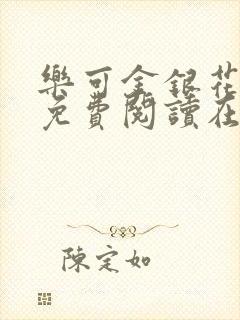 樂可金銀花
免費閱讀在
陳定如